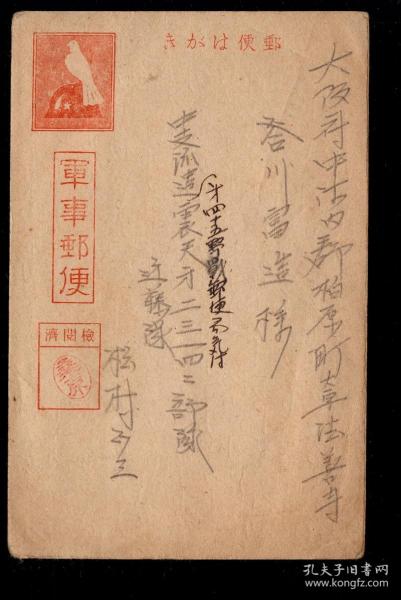 郵便はがき
軍事郵便
検閲済
大阪府中河内郡柏原町大字法善寺
谷川富造様
第四十五野戦郵便局気付
中支派遣
第二三一四二部隊
近藤隊
松村
孔夫子旧书网
www.kongfz.com